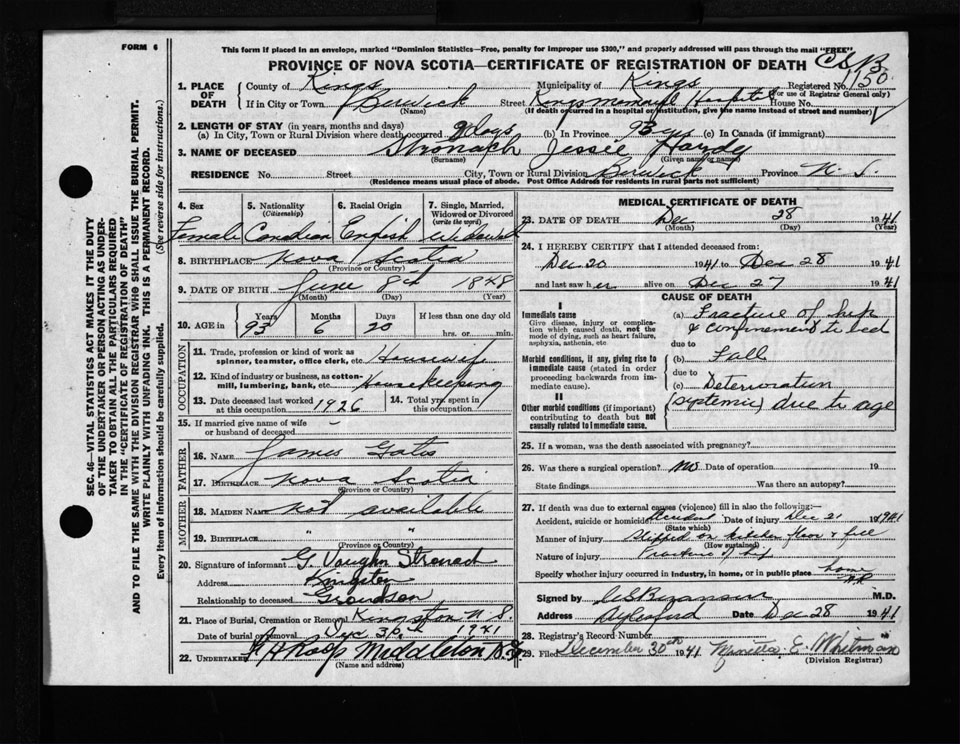 FORM 6
This form if placed in an envelope, marked "Dominion Statistics—Free, penalty for improper use $300," and properly addressed will pass through the mail "FREE"
PROVINCE OF NOVA SCOTIA—CERTIFICATE OF REGISTRATION OF DEATH
1. PLACE OF DEATH
County of Kings Municipality of Kings Registered No. 1150
(For use of Registrar General only)
If in City or Town Berwick Street Kings Memorial Hospital House No.
(Name) (If death occurred in a hospital or institution, give the name instead of street and number)
2. LENGTH OF STAY (in years, months and days)
(a) In City, Town or Rural Division where death occurred 9 days (b) In Province 93 yrs (c) In Canada (if immigrant)
3. NAME OF DECEASED Stronach Jessie Hardy
(Surname) (Given name or names)
RESIDENCE No. Street City, Town or Rural Division Berwick Province N. S.
(Residence means usual place of abode. Post Office Address for residents in rural parts not sufficient)
4. Sex Female
5. Nationality (Citizenship) Canadian
6. Racial Origin English
7. Single, Married, Widowed or Divorced (write the word) Widowed
8. BIRTHPLACE Nova Scotia
(Province or Country)
9. DATE OF BIRTH June 8th 1848
(Month) (Day) (Year)
10. AGE in Years 93 Months 6 Days 20 If less than one day old hrs. or min.
OCCUPATION
11. Trade, profession or kind of work as spinner, teamster, office clerk, etc. Housewife
12. Kind of industry or business, as cotton-mill, lumbering, bank, etc. Housekeeping
13. Date deceased last worked at this occupation 1926
14. Total yrs. spent in this occupation
15. If married give name of wife or husband of deceased -
FATHER
16. NAME James Gates
17. BIRTHPLACE Nova Scotia
(Province or Country)
MOTHER
18. MAIDEN NAME Not available
19. BIRTHPLACE " "
(Province or Country)
20. Signature of informant G. Vaughn Stronach
Address Kingston
Relationship to deceased Grandson
21. Place of Burial, Cremation or Removal Kingston N. S.
Date of burial or removal Dec 30th 1941
22. UNDERTAKER Roop Middleton N. S.
(Name and address)
MEDICAL CERTIFICATE OF DEATH
23. DATE OF DEATH Dec 28 1941
(Month) (Day) (Year)
24. I HEREBY CERTIFY that I attended deceased from:
Dec 20 1941 to Dec 28 1941
and last saw her alive on Dec 27 1941
CAUSE OF DEATH
I
Immediate cause
Give disease, injury or complication which caused death, not the mode of dying, such as heart failure, asphyxia, asthenia, etc.
(a) Fracture of hip & confinement to bed
due to
Morbid conditions, if any, giving rise to immediate cause (stated in order proceeding backwards from immediate cause).
(b) Fall
due to
(c) Deterioration (systemic) due to age
II
Other morbid conditions (if important) contributing to death but not causally related to immediate cause.
25. If a woman, was the death associated with pregnancy?
26. Was there a surgical operation? no Date of operation 19
State findings Was there an autopsy?
27. If death was due to external causes (violence) fill in also the following:—
Accident, suicide or homicide Accident Date of injury Dec 21 1941
(State which)
Manner of injury Slipped on kitchen floor & fell
(How sustained)
Nature of injury Fracture of hip
Specify whether injury occurred in industry, in home, or in public place home
Signed by M.D.
Address Aylesford Date Dec 28 1941
28. Registrar's Record Number
29. Filed December 30th 1941 E. Whitman
(Division Registrar)
SEC. 46—VITAL STATISTICS ACT MAKES IT THE DUTY
OF THE UNDERTAKER OR PERSON ACTING AS UNDER-
TAKER TO OBTAIN ALL THE PARTICULARS REQUIRED
IN THE "CERTIFICATE OF REGISTRATION OF DEATH"
AND TO FILE THE SAME WITH THE DIVISION REGISTRAR WHO SHALL ISSUE THE BURIAL PERMIT.
WRITE PLAINLY WITH UNFADING INK. THIS IS A PERMANENT RECORD.
Every item of information should be carefully supplied. (See reverse side for instructions.)